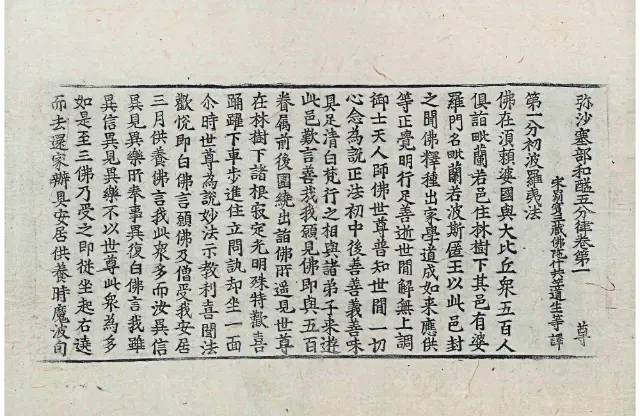 弥沙塞部和醯五分律卷第一 尊
宋罽賓三藏佛陀什共竺道生等譯
第一分初波羅夷法
佛在須賴婆國與大比丘衆五百人
俱詣毗蘭若邑住林樹下其邑有婆
羅門名毗蘭若波斯匿王以此邑封
之聞佛釋種出家學道成如來應供
等正覺明行足善逝世間解無上調
御士天人師佛世尊普知世間一切
心念為說正法初中後善善義善味
具足清白梵行之相與諸弟子來遊
此邑歎言善哉我願見佛即與五百
眷屬前後圍繞出詣佛所遥見世尊
在林樹下諸根寂定光明殊特歡喜
踊躍下車步進住立問訊却坐一面
尒時世尊為說妙法示教利喜聞法
歡悅即白佛言願佛及僧受我安居
三月供養佛言我此衆多而汝異信
異見異樂所奉事異復白佛言我雖
異信異見異樂不以世尊此衆為多
如是至三佛乃受之即從坐起右遶
而去還家辦具安居供養時魔波旬